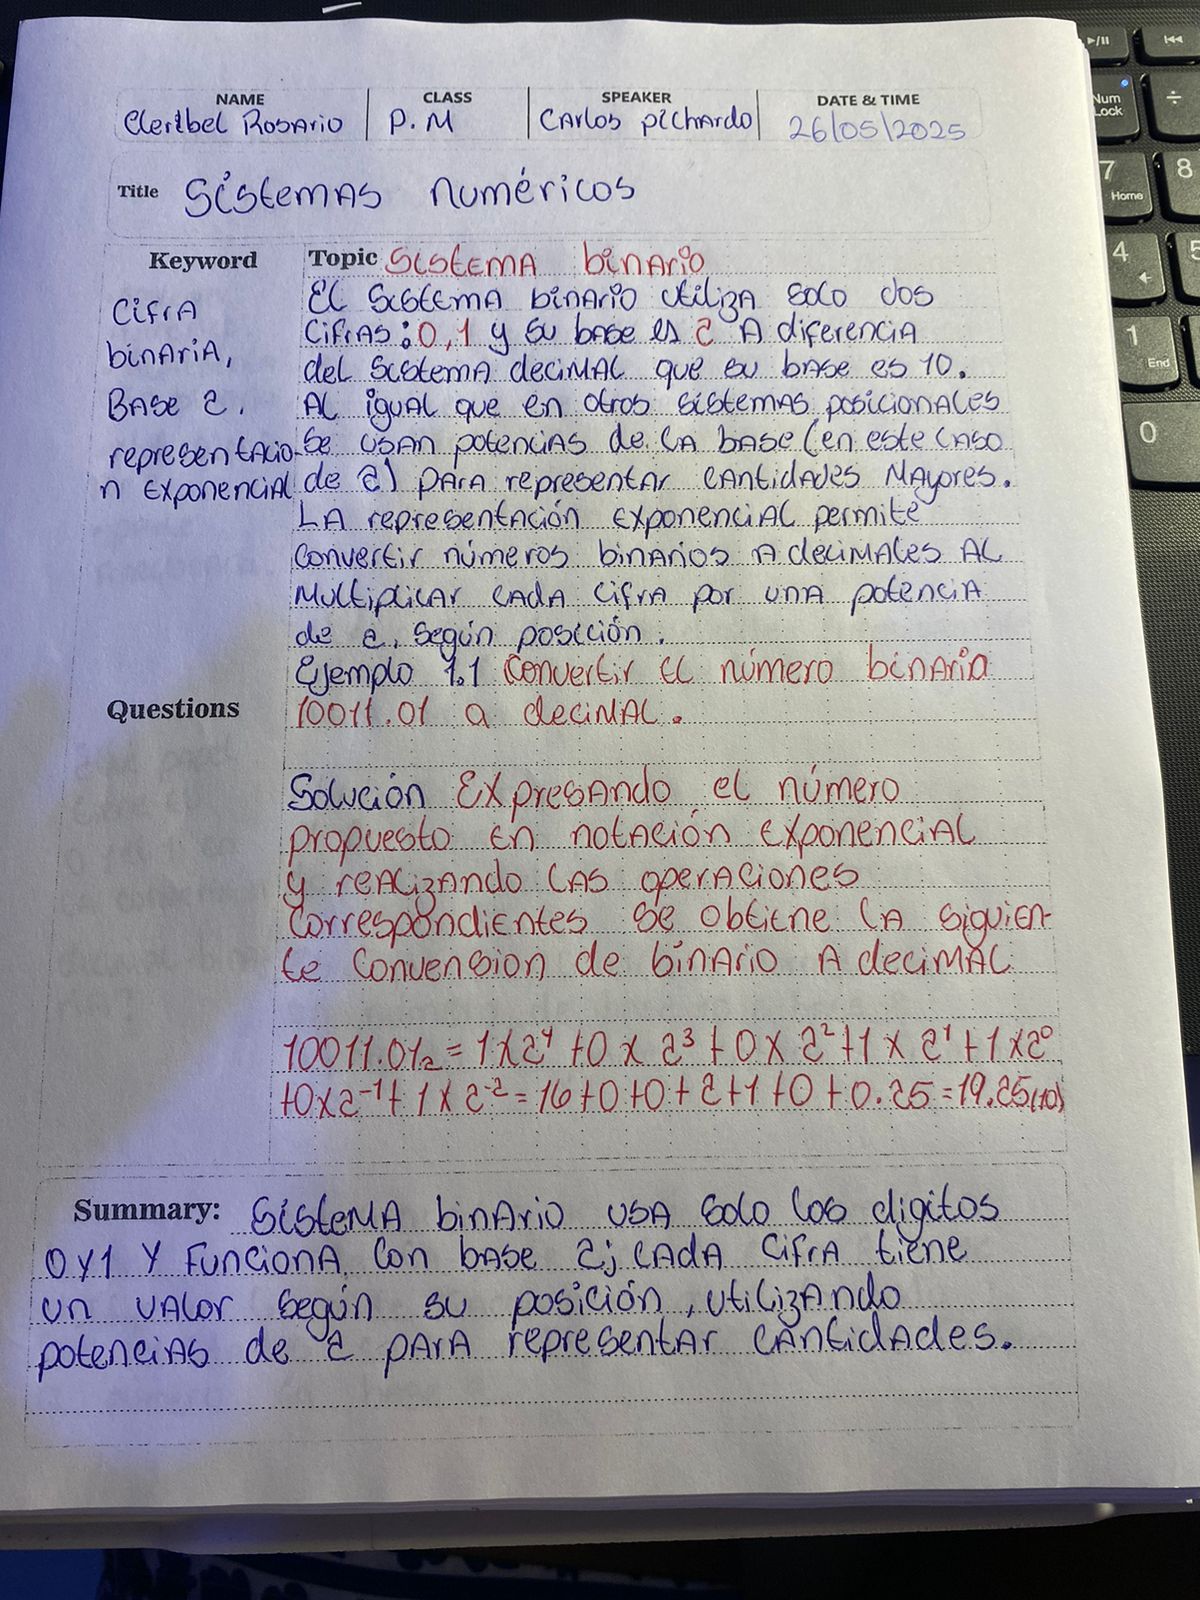 NAME CLASS SPEAKER DATE & TIME
Cleribel Rosario P.M Carlos pichardo 26/05/2025
Title Sistemas numéricos
Keyword
Cifra
binaria,
Base 2.
representacio
n exponencial
Topic Sistema binario
El sistema binario utiliza solo dos
cifras: 0,1 y su base es 2 A diferencia
del sistema decimal que su base es 10.
Al igual que en otros sistemas posicionales
se usan potencias de la base (en este caso
de 2) para representar cantidades mayores.
La representación exponencial permite
convertir números binarios a decimales al
multiplicar cada cifra por una potencia
de 2, según posición.
Ejemplo 1.1 Convertir el número binaria
10011.01 a decimal.
Questions
Solución Expresando el número
propuesto en notación exponencial
y realizando las operaciones
correspondientes se obtiene la siguien-
te convension de binario a decimal
10011.01₂ = 1 x 2⁴ + 0 x 2³ + 0 x 2² + 1 x 2¹ + 1 x 2⁰
+0 x 2⁻¹ + 1 x 2⁻² = 16 + 0 + 0 + 2 + 1 + 0 + 0.25 = 19.25(10)
Summary: Sistema binario usa solo los digitos
0 y 1 y funciona con base 2; cada cifra tiene
un valor según su posición, utilizando
potencias de 2 para representar cantidades.
▶/II
Num
Lock
÷
7
Home
8
4
5
1
End
0